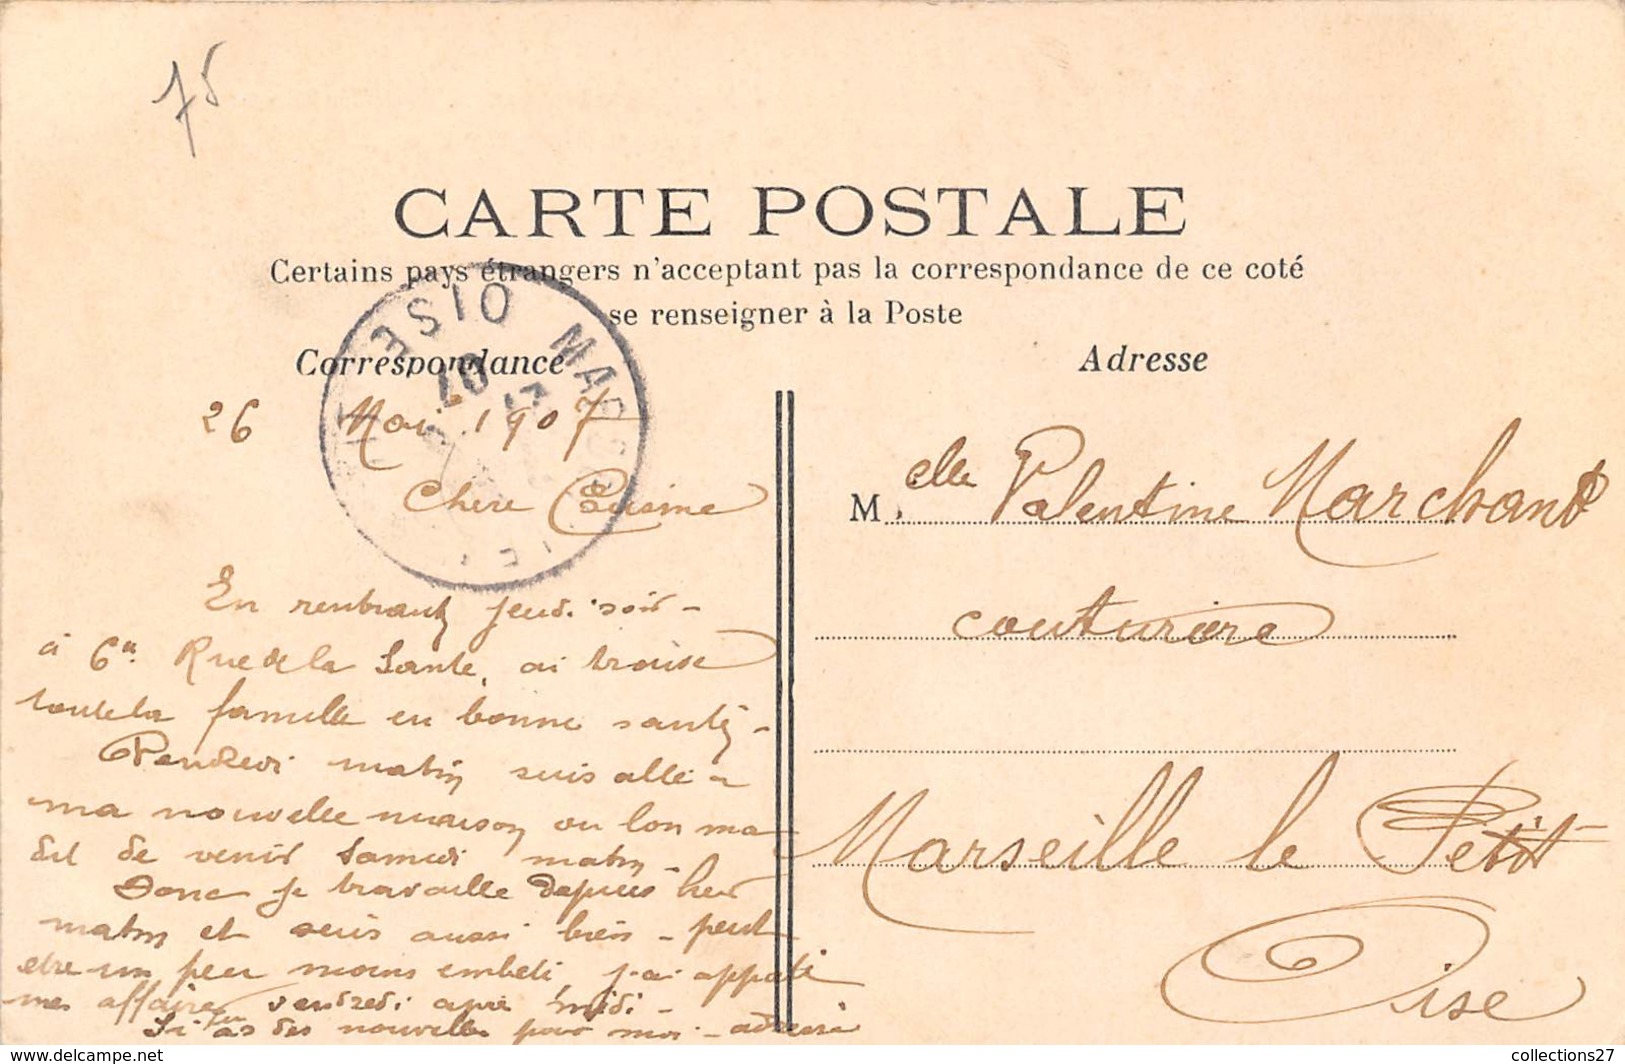 75
CARTE POSTALE
Certains pays étrangers n'acceptant pas la correspondance de ce coté
se renseigner à la Poste
Correspondance
OISE
07
26 Mai 1907
Chère Cousine
En rentrant jeudi soir -
à 6h. Rue de la Sante, ai trouvé
toute la famille en bonne santé, -
Vendredi matin suis allé a
ma nouvelle maison ou lon ma
dit de venir Samedi matin -
Donc je travaille depuis hier
matin et suis aussi bien - peut
etre un peu moins embeté, j'ai apporté
mes affaires vendredi apré midi -
Si tu as des nouvelles pour moi - adresse
Adresse
Melle Valentine Marchand
couturière
Marseille le Petit
Oise
collections27